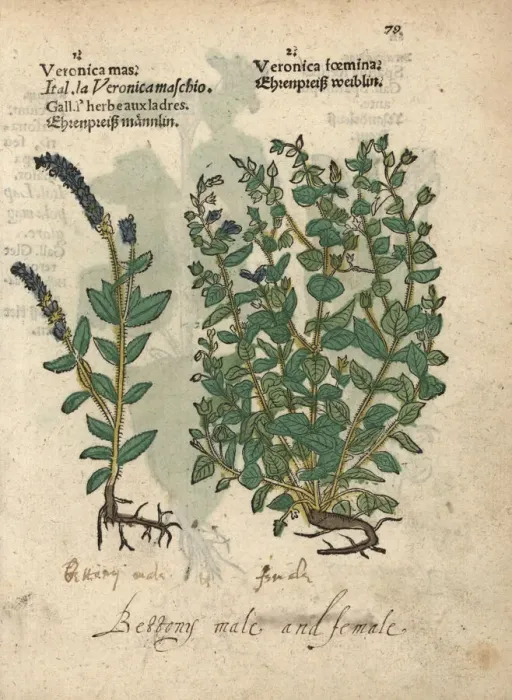 79.
1ª
Veronica mas.
Ital. la Veronica maschio.
Gall. l'herbe aux ladres.
Ehrenpreiß männlin.
2ª
Veronica fœmina.
Ehrenpreiß weiblin.
Bettony male
female
Bettony male and female